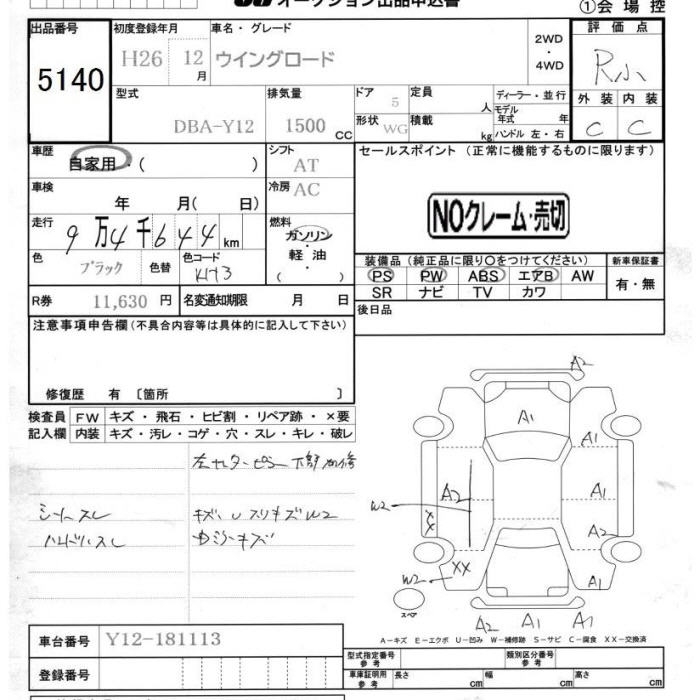 オークション出品申込書
①会場控
出品番号
5140
初度登録年月
H26 12月
車名・グレード
ウイングロード
2WD
・
4WD
評価点
R小
外装 内装
C C
型式
DBA-Y12
排気量
1500 CC
ドア 5
形状 WG
定員 人
積載 kg
ディーラー・並行
モデル年式 年
ハンドル 左・右
車歴
自家用・( )
シフト
AT
セールスポイント (正常に機能するものに限ります)
車検
年 月( 日)
冷房
AC
NOクレーム・売切
走行
9万4千644km
燃料
ガソリン
軽油
( )
色
ブラック
色替
色コード
KH3
装備品(純正品に限り○をつけてください)
PS PW ABS エアB AW
SR ナビ TV カワ
新車保証書
有・無
R券 11,630円
名変通知期限 月 日
後日品
注意事項申告欄(不具合内容等は具体的に記入して下さい)
修復歴 有 〔箇所 〕
検査員記入欄
FW キズ・飛石・ヒビ割・リペア跡・×要
内装 キズ・汚レ・コゲ・穴・スレ・キレ・破レ
左センターピラー下部 加修
シートスレ
キズ、U スリキズ W2
ハンドルスレ
ミラーキズ
A2
A1
A1
A2
A1
W2
XX
A2
XX
W2
A1
スペア
A2 A1 A1
A－キズ E－エクボ U－凹み W－補修跡 S－サビ C－腐食 XX－交換済
車台番号
Y12-181113
登録番号
型式指定番号
参考
類別区分番号
参考
車庫証明用
参考
長さ cm
幅 cm
高さ cm